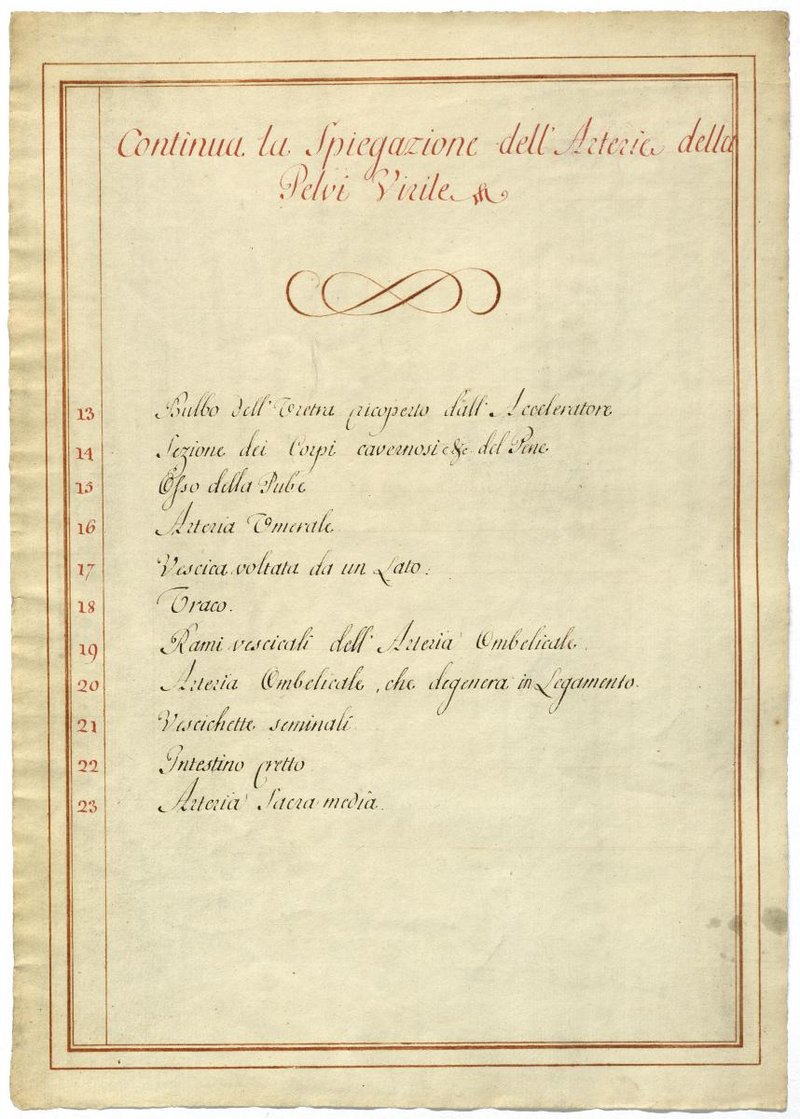 Continua la Spiegazione dell'Arterie della
Pelvi Virile
13 Bulbo dell'Uretra ricoperto dall'Acceleratore
14 Sezione dei Corpi cavernosi &c del Pene
15 Osso della Pube
16 Arteria Umerale
17 Vescica voltata da un Lato:
18 Uraco.
19 Rami vescicali dell'Arteria Ombelicale.
20 Arteria Ombelicale, che degenera in Legamento.
21 Vescichette seminali
22 Intestino retto
23 Arteria Sacra media.